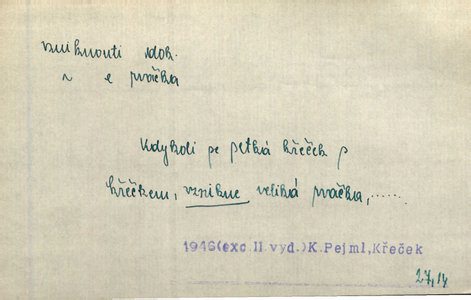 vzniknouti dok.
~ e pračka
Kdykoli se setká křeček s
křečkem, vznikne veliká pračka,......
1946(exc.II.vyd.)K.Pejml,Křeček
27,14